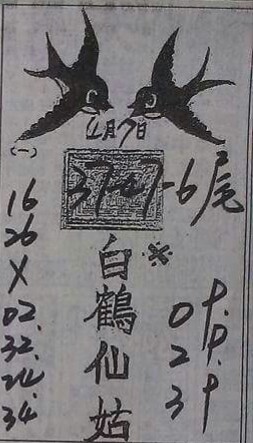 4月7日
(一)
37-47-6尾
16
26
X
02.
32.
24
34.
白鶴仙姑
※
0
2
3